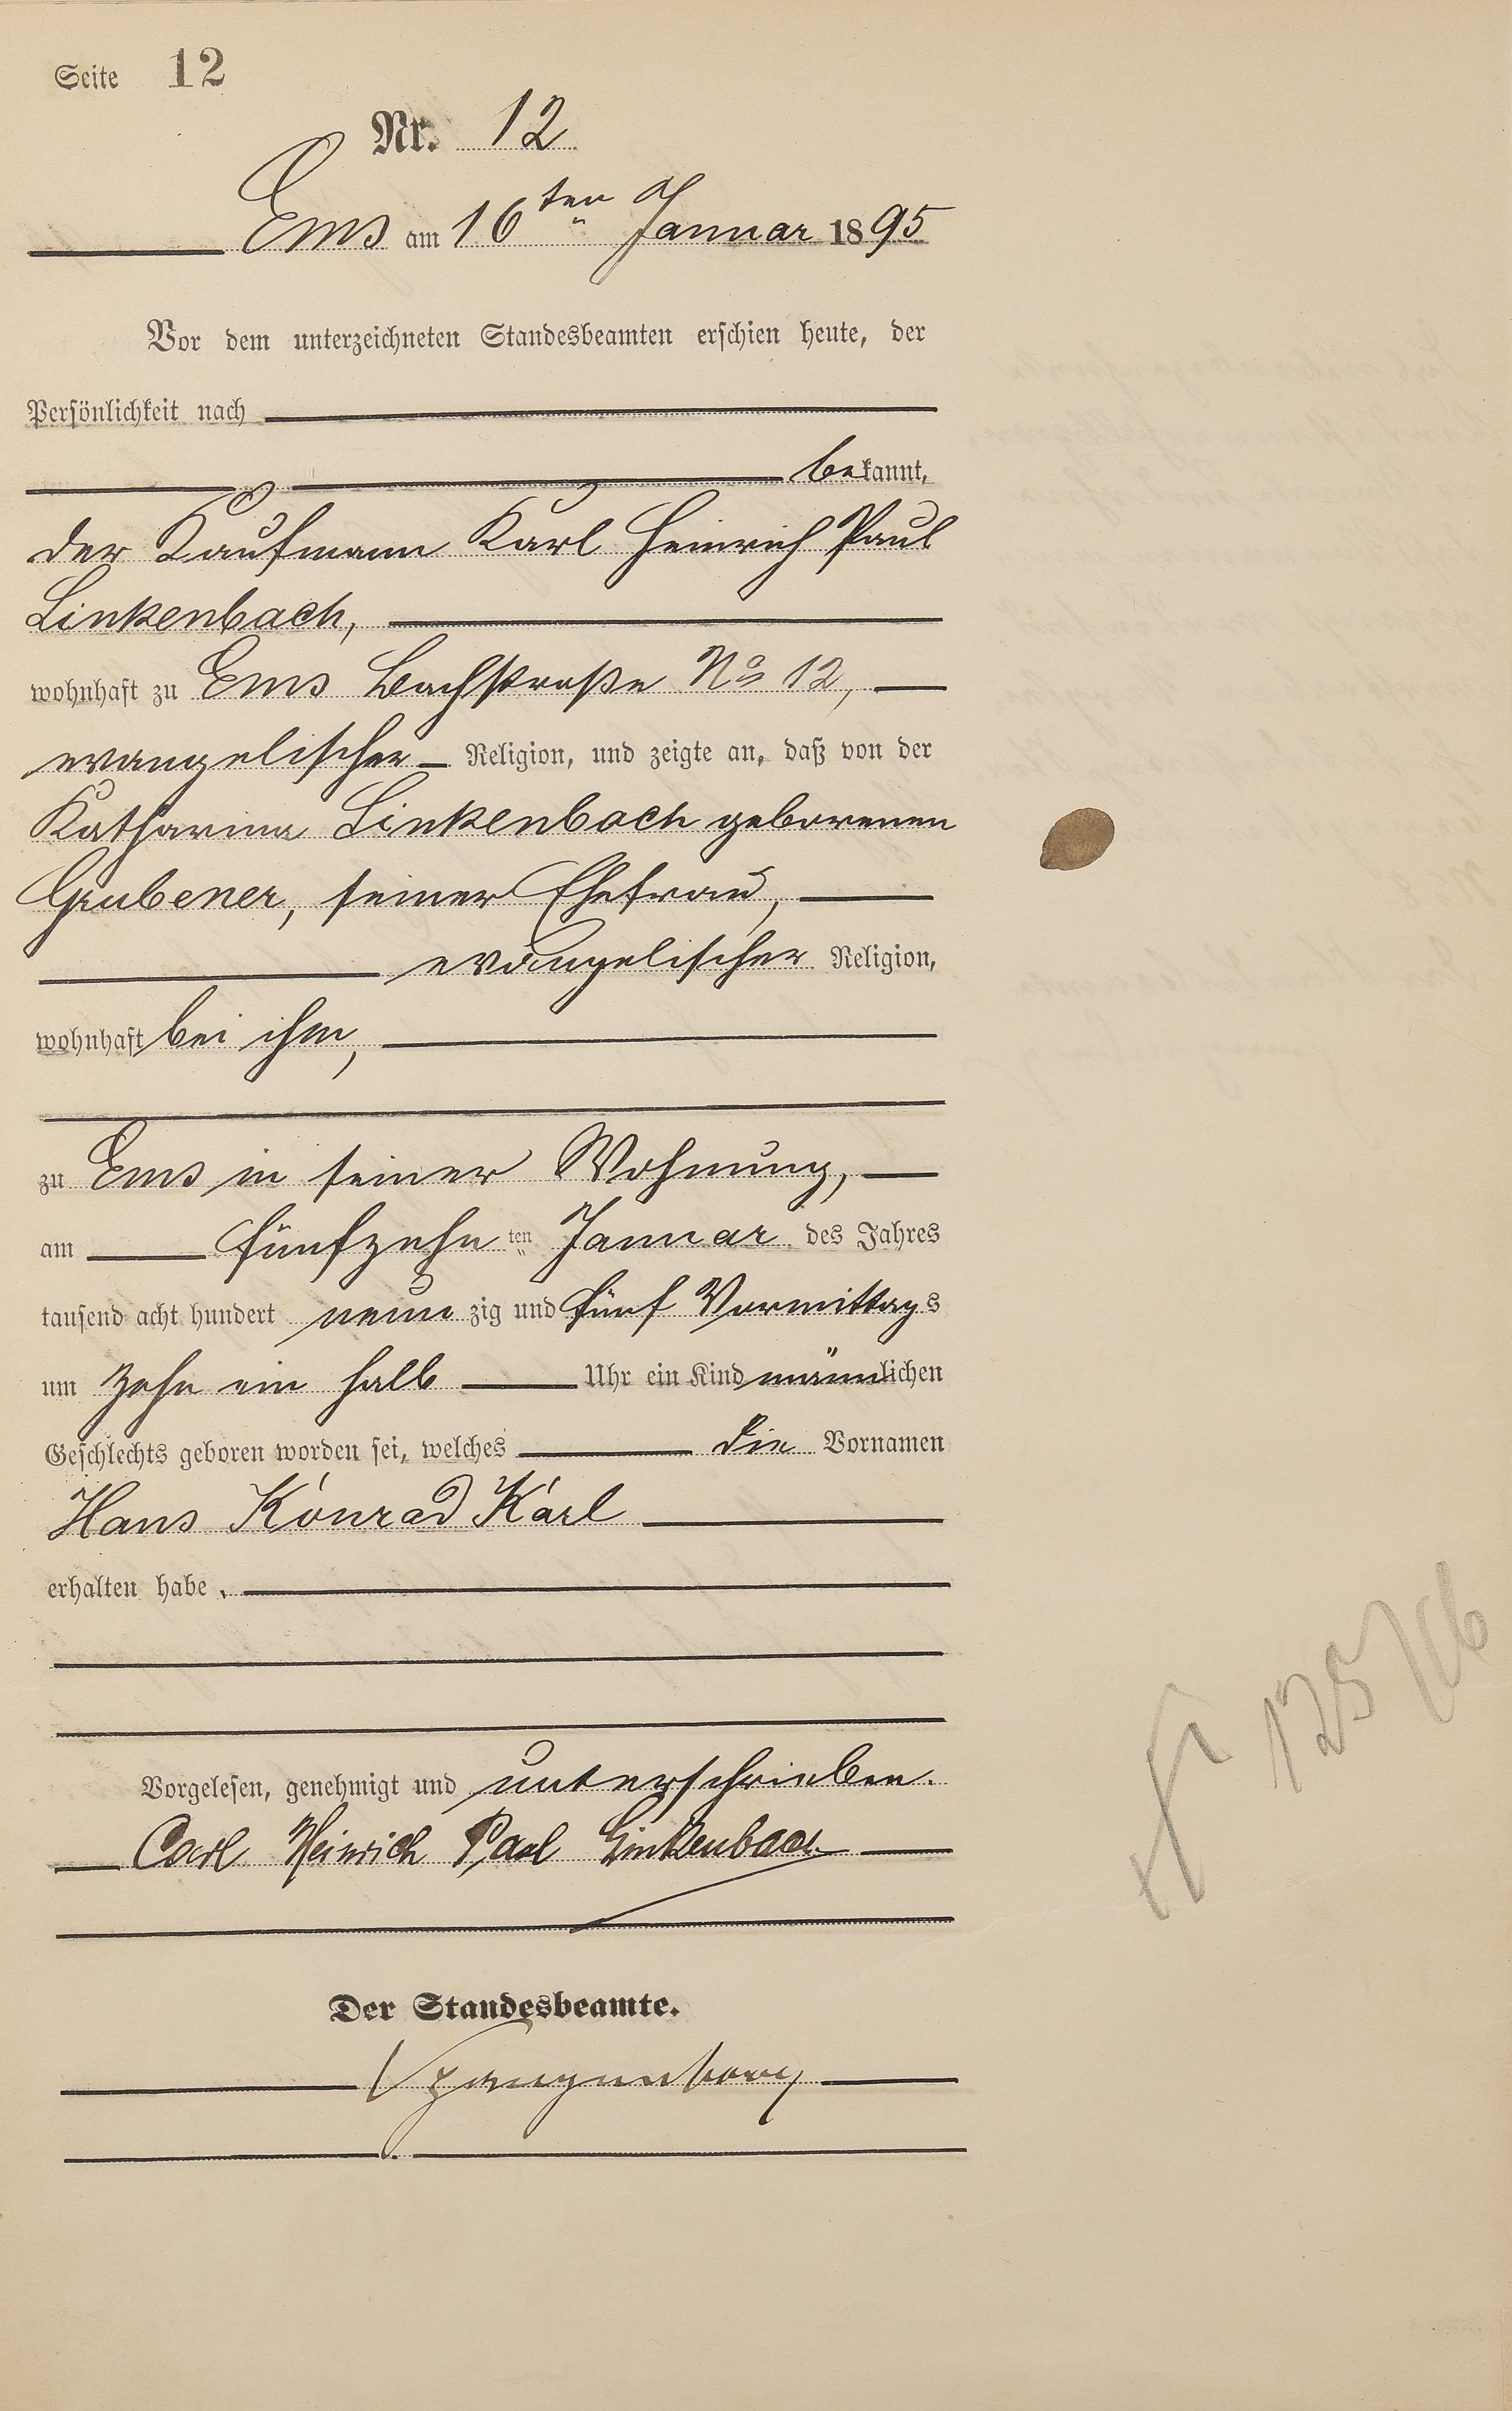 Seite 12
Nr. 12
Ems am 16ten Januar 1895
Vor dem unterzeichneten Standesbeamten erschien heute, der
Persönlichkeit nach
bekannt,
der Kaufmann Karl Heinrich Paul
Linkenbach,
wohnhaft zu Ems Bachstraße No 12,
evangelischer Religion, und zeigte an, daß von der
Katharina Linkenbach geborenen
Grubener, seiner Ehefrau,
evangelischer Religion,
wohnhaft bei ihm,
zu Ems in seiner Wohnung,
am fünfzehnten Januar des Jahres
tausend acht hundert neunzig und fünf Vormittags
um zehn ein halb Uhr ein Kind männlichen
Geschlechts geboren worden sei, welches die Vornamen
Hans Konrad Karl
erhalten habe.
Vorgelesen, genehmigt und unterschrieben.
Carl Heinrich Paul Linkenbach
Der Standesbeamte.